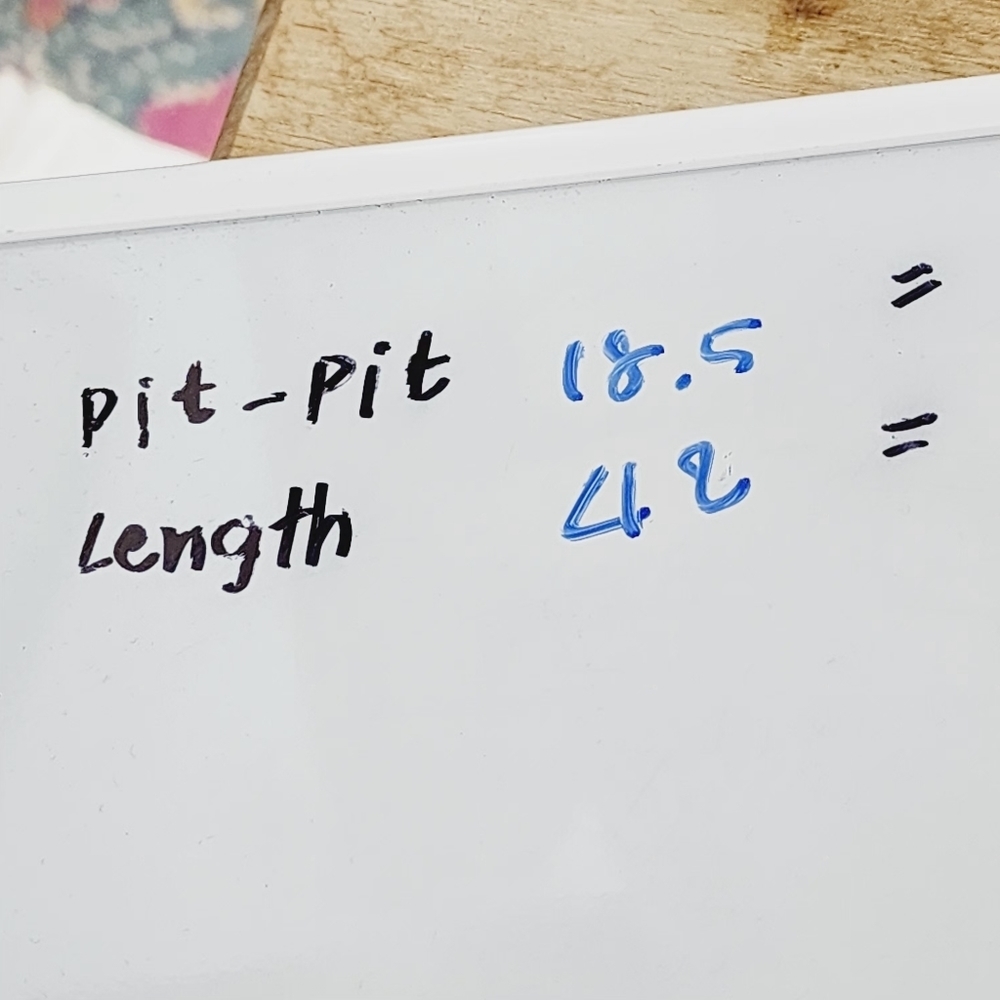 pit-Pit 18.5 "
Length 42 "